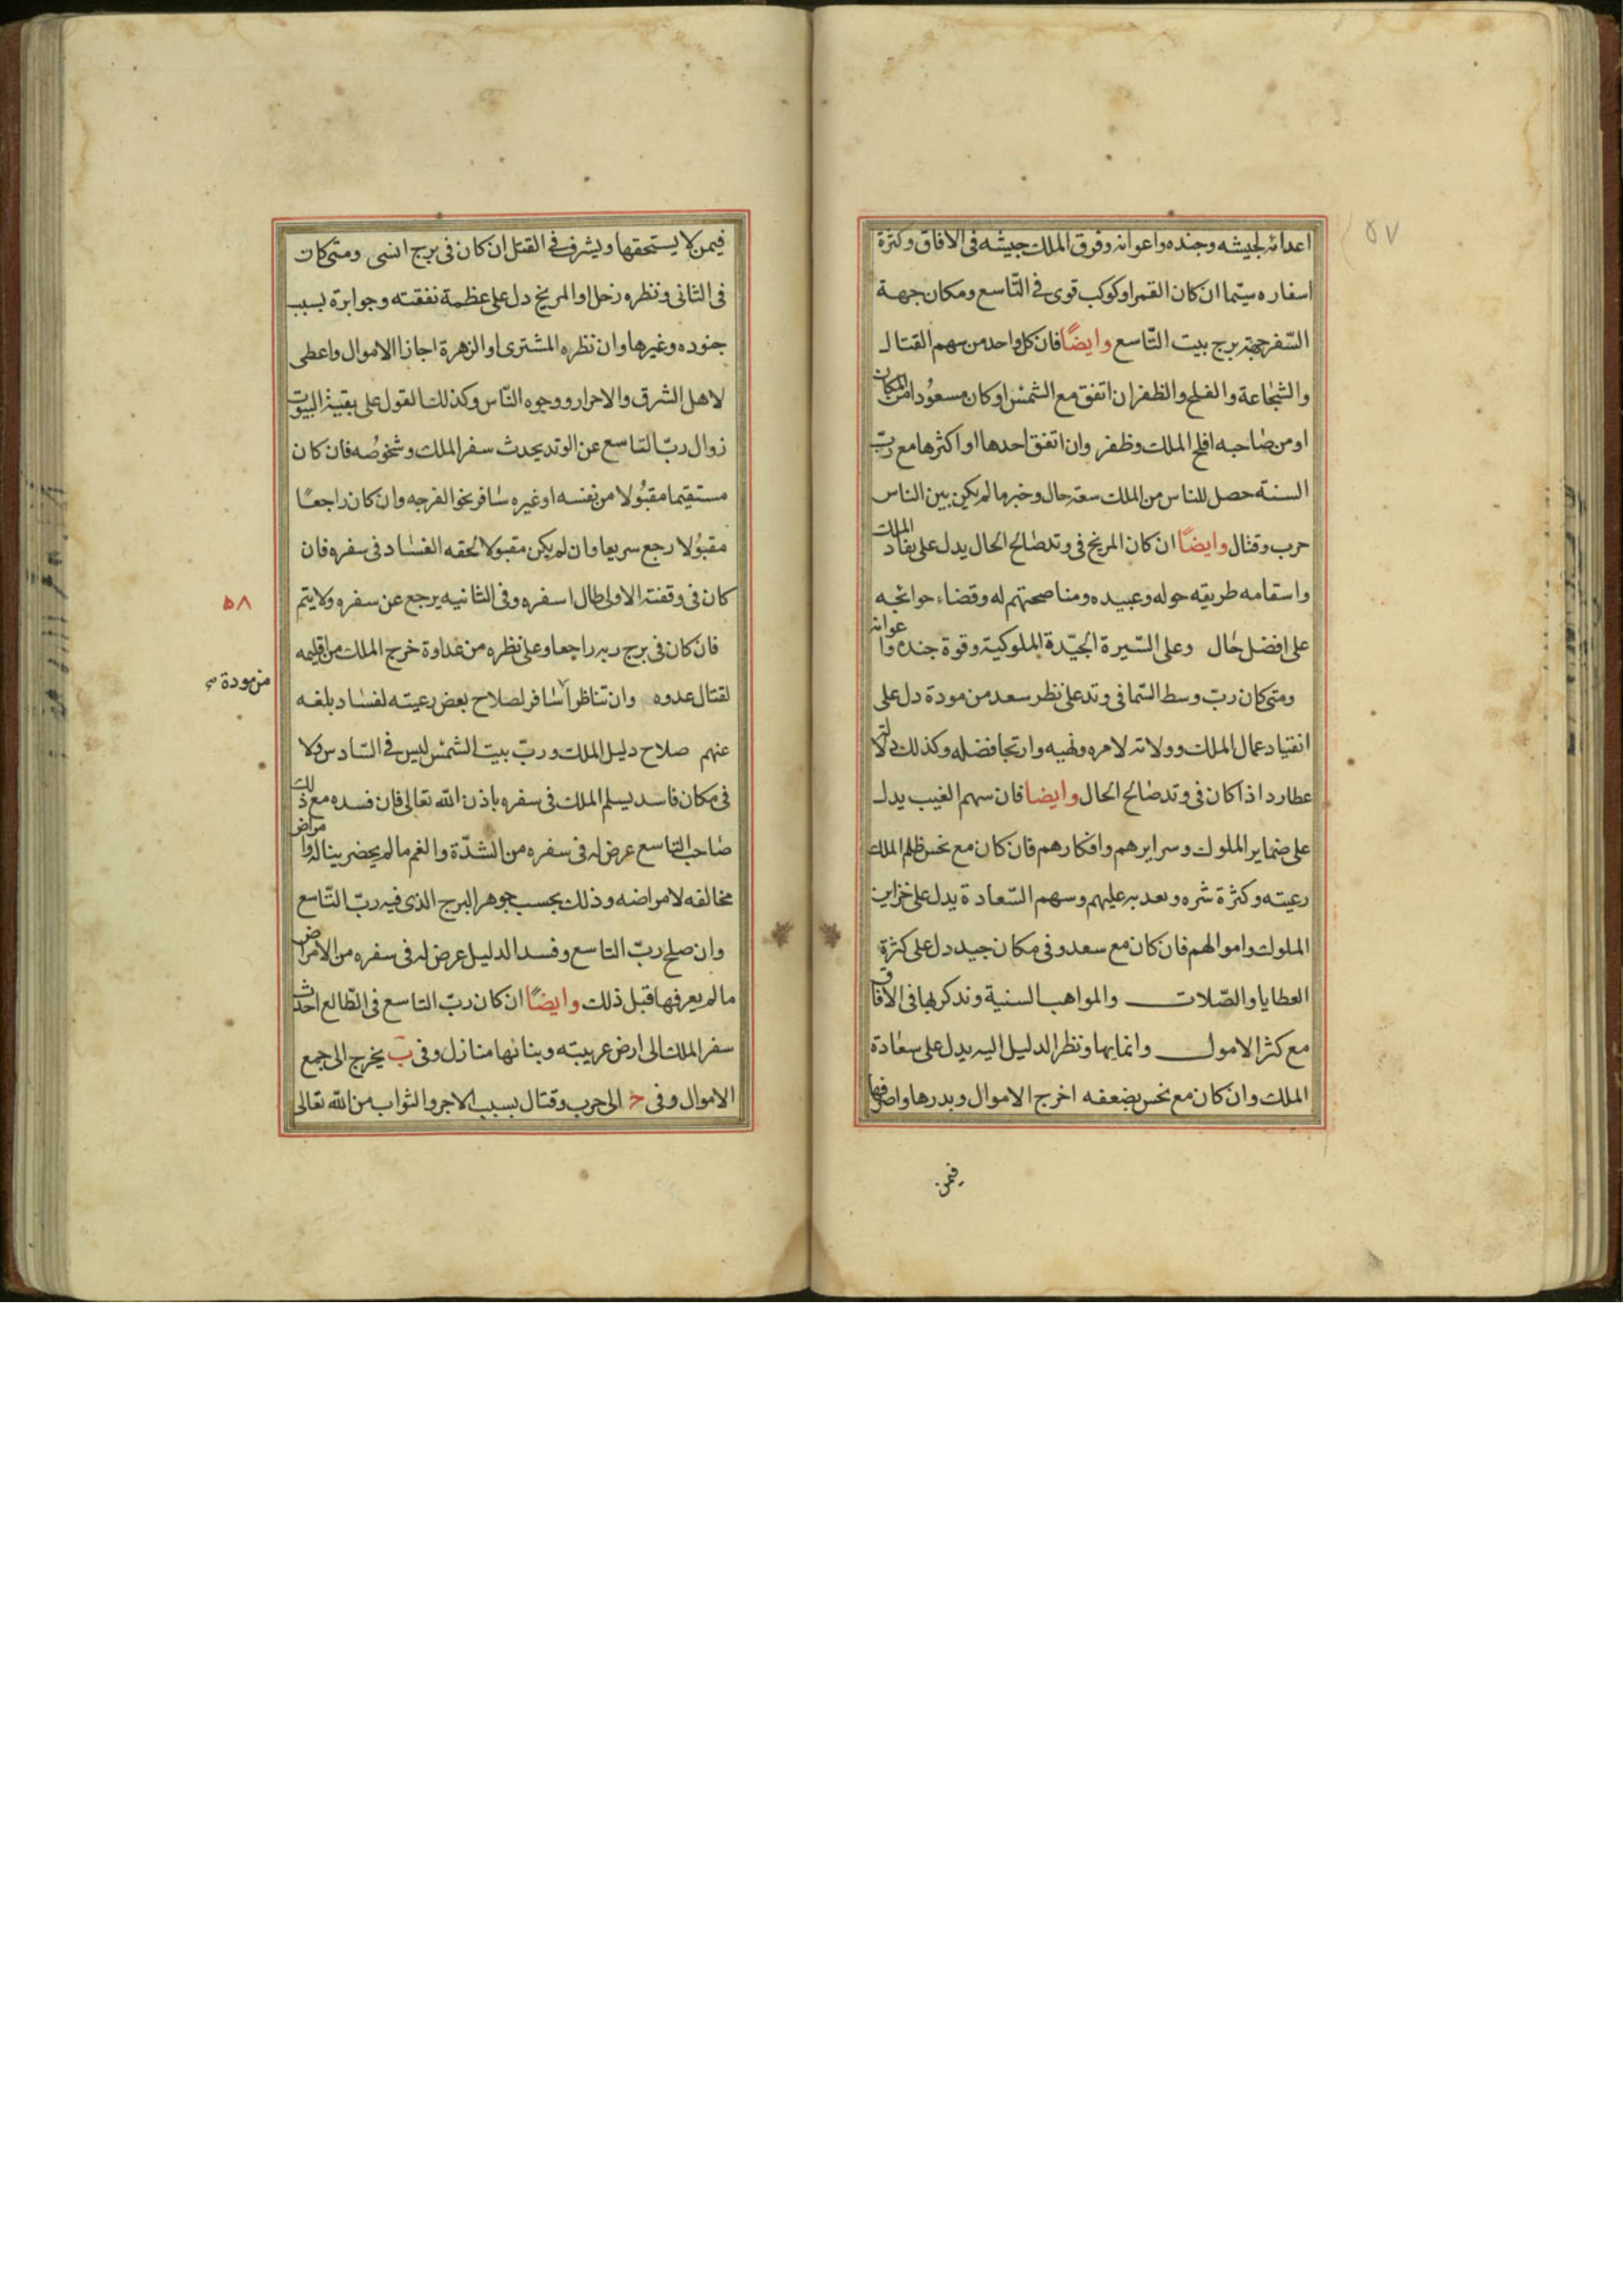 ٥٧
اعدائه لجيشه وجنده واعوانه وفرق الملك جيشه فى الافاق وكثرة
اسفاره سيّما ان كان القمر او كوكب قوى فى التّاسع ومكان جهة
السّفر جهة برج بيت التّاسع وايضًا فان كل واحد من سهم القتال
والشجاعة والفلح والظفر ان اتفق مع الشمس او كان مسعودا من المكان
او من صاحبه افلح الملك وظفر وان اتفق احدها او اكثرها مع ربّ
السنة حصل للناس من الملك سعة حال وخير ما لم يكن بين الناس
حرب وقتال وايضًا ان كان المريخ فى وتد صالح الحال يدل على نفاد الملك
واسقامه طريقه حوله وعبيده ومناصحتهم له وقضاء حوائجه
على افضل حال وعلى السّيرة الجيّدة الملوكية وقوة جنده واعوانه
ومتى كان ربّ وسط السّما فى وتد على نظر سعد من مودة دل على
انقياد عمال الملك وولاته لامره ونهيه وارتجا فضله وكذلك دلالة
عطارد اذا كان فى وتد صالح الحال وايضا فان سهم الغيب يدل
على ضماير الملوك وسرايرهم وافكارهم فان كان مع نحس ظلم الملك
رعيته وكثرة شره وبعد به عليهم وسهم السّعادة يدل على خزاين
الملوك واموالهم فان كان مع سعد وفى مكان جيد دل على كثرة
العطايا والصّلات والمواهب السنية وندكر بها فى الافاق
مع كثر الامول وانمايها ونظر الدليل اليه يدل على سعادة
الملك وان كان مع نحس بضعفه اخرج الاموال وبدرها واصرفها
فيمن
فيمن لا يستحقها ويشرف فى القتل ان كان فى برج انسى ومتى كان
فى الثانى ونظره زحل او المريخ دل على عظمة نفقته وجوابرة بسبب
جنوده وغيرها وان نظره المشترى او الزهرة اجازا الاموال واعطى
لاهل الشرق والاحرار ووجوه النّاس وكذلك القول على بقية البيوت
زوال ربّ التاسع عن الوتد يحدث سفر الملك وشخوصه فان كان
مستقيما مقبولا من نفسه او غيره سافر نحوا لفرجه وان كان راجعًا
مقبولا رجع سريعا وان لم يكن مقبولا لحقه الفساد فى سفره فان
كان فى وقفته الاولى طال اسفره وفى الثانيه يرجع عن سفره ولا يتم
٥٨
فان كان فى برج ربه راجعا وعلى نظره من عداوة خرج الملك من اقليمه
لقتال عدوه وان تناظرا سافر لصلاح بعض رعيته لفساد بلغه
من مودة صح
عنهم صلاح دليل الملك ورب بيت الشمس ليس فى السّادس ولا
فى مكان فاسد يسلم الملك فى سفره باذن الله تعالى فان فسده مع ذلك
صاحب التاسع عرض له فى سفره من الشدّة والغم ما لم يحضر بباله وامراض
مخالفه لامراضه وذلك بحسب جوهر البرج الذى فيه ربّ التّاسع
وان صلح ربّ التاسع وفسد الدليل عرض له فى سفره من الامراض
ما لم يعرفها قبل ذلك وايضًا ان كان ربّ التاسع فى الطّالع احدث
سفر الملك الى ارض غريبته وبنا نها منازل وفى ب يخرج الى جمع
الاموال وفى ح الى حرب وقتال بسبب الاجر والثواب من الله تعالى